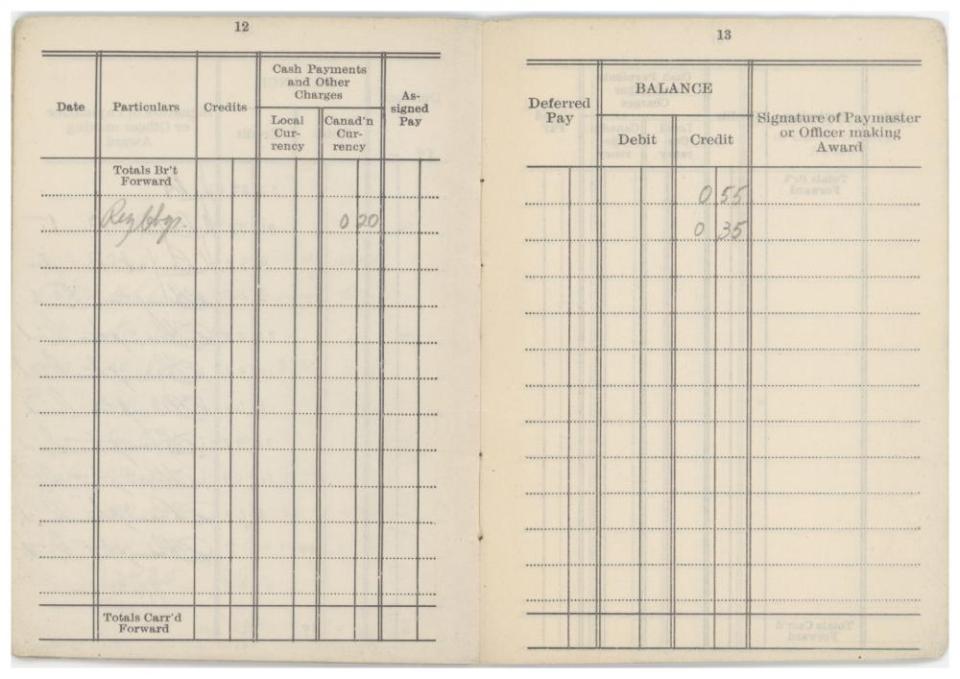 12
Date
Particulars
Credits
Cash Payments
and Other
Charges
Local
Cur-
rency
Canad'n
Cur-
rency
As-
signed
Pay
Totals Br't
Forward
0 20
Totals Carr'd
Forward
13
Deferred
Pay
BALANCE
Debit
Credit
Signature of Paymaster
or Officer making
Award
0 55
0 35